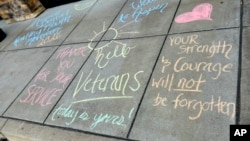 Thank
you
for your
SERVICE
hello
Veterans
today is yours!
YOUR
Strength
& Courage
will not
be forgotten
AP